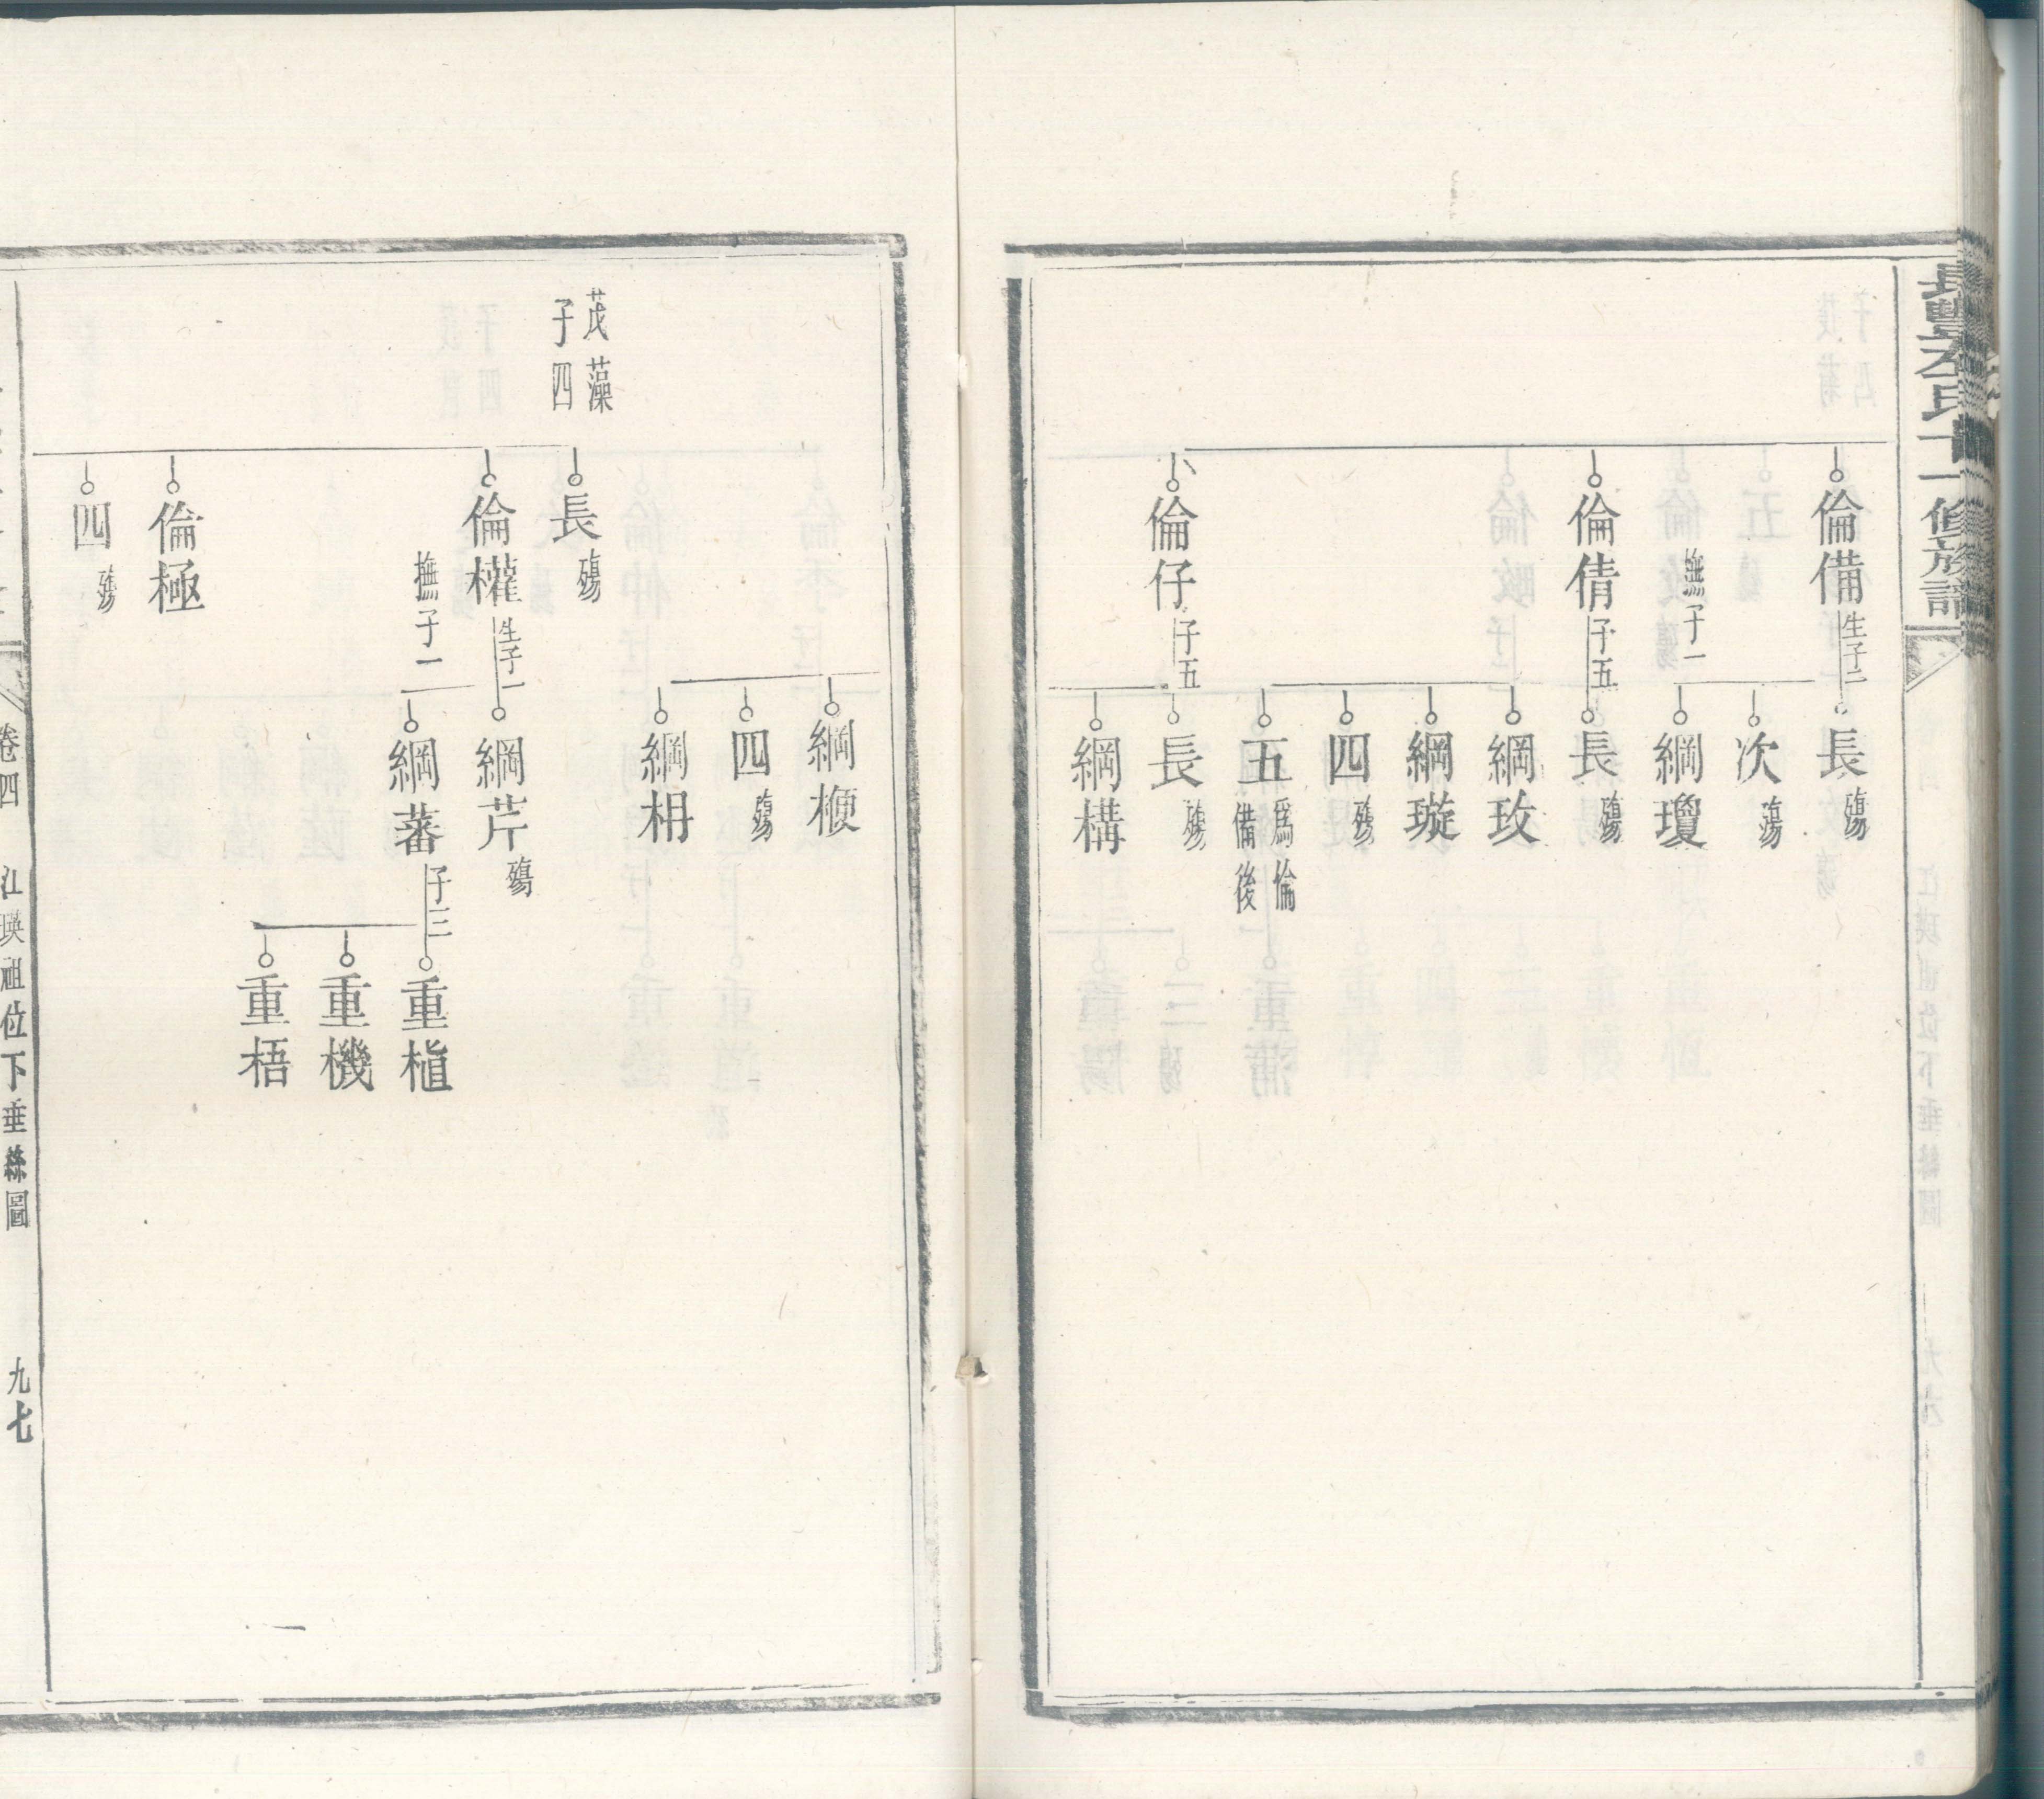 倫備
生子二
撫子一
長
殤
次
殤
綱瓊
倫倩
子五
長
殤
綱玫
綱璇
四
殤
五
爲倫
備後
倫仔
子五
長
殤
綱構
綱楩
四
殤
綱枏
茂藻
子四
長
殤
倫權
生子一
撫子一
綱芹
殤
綱蕃
子三
重植
重機
重梧
倫極
四
殤
卷四
江瑛祖位下垂絲圖
九七